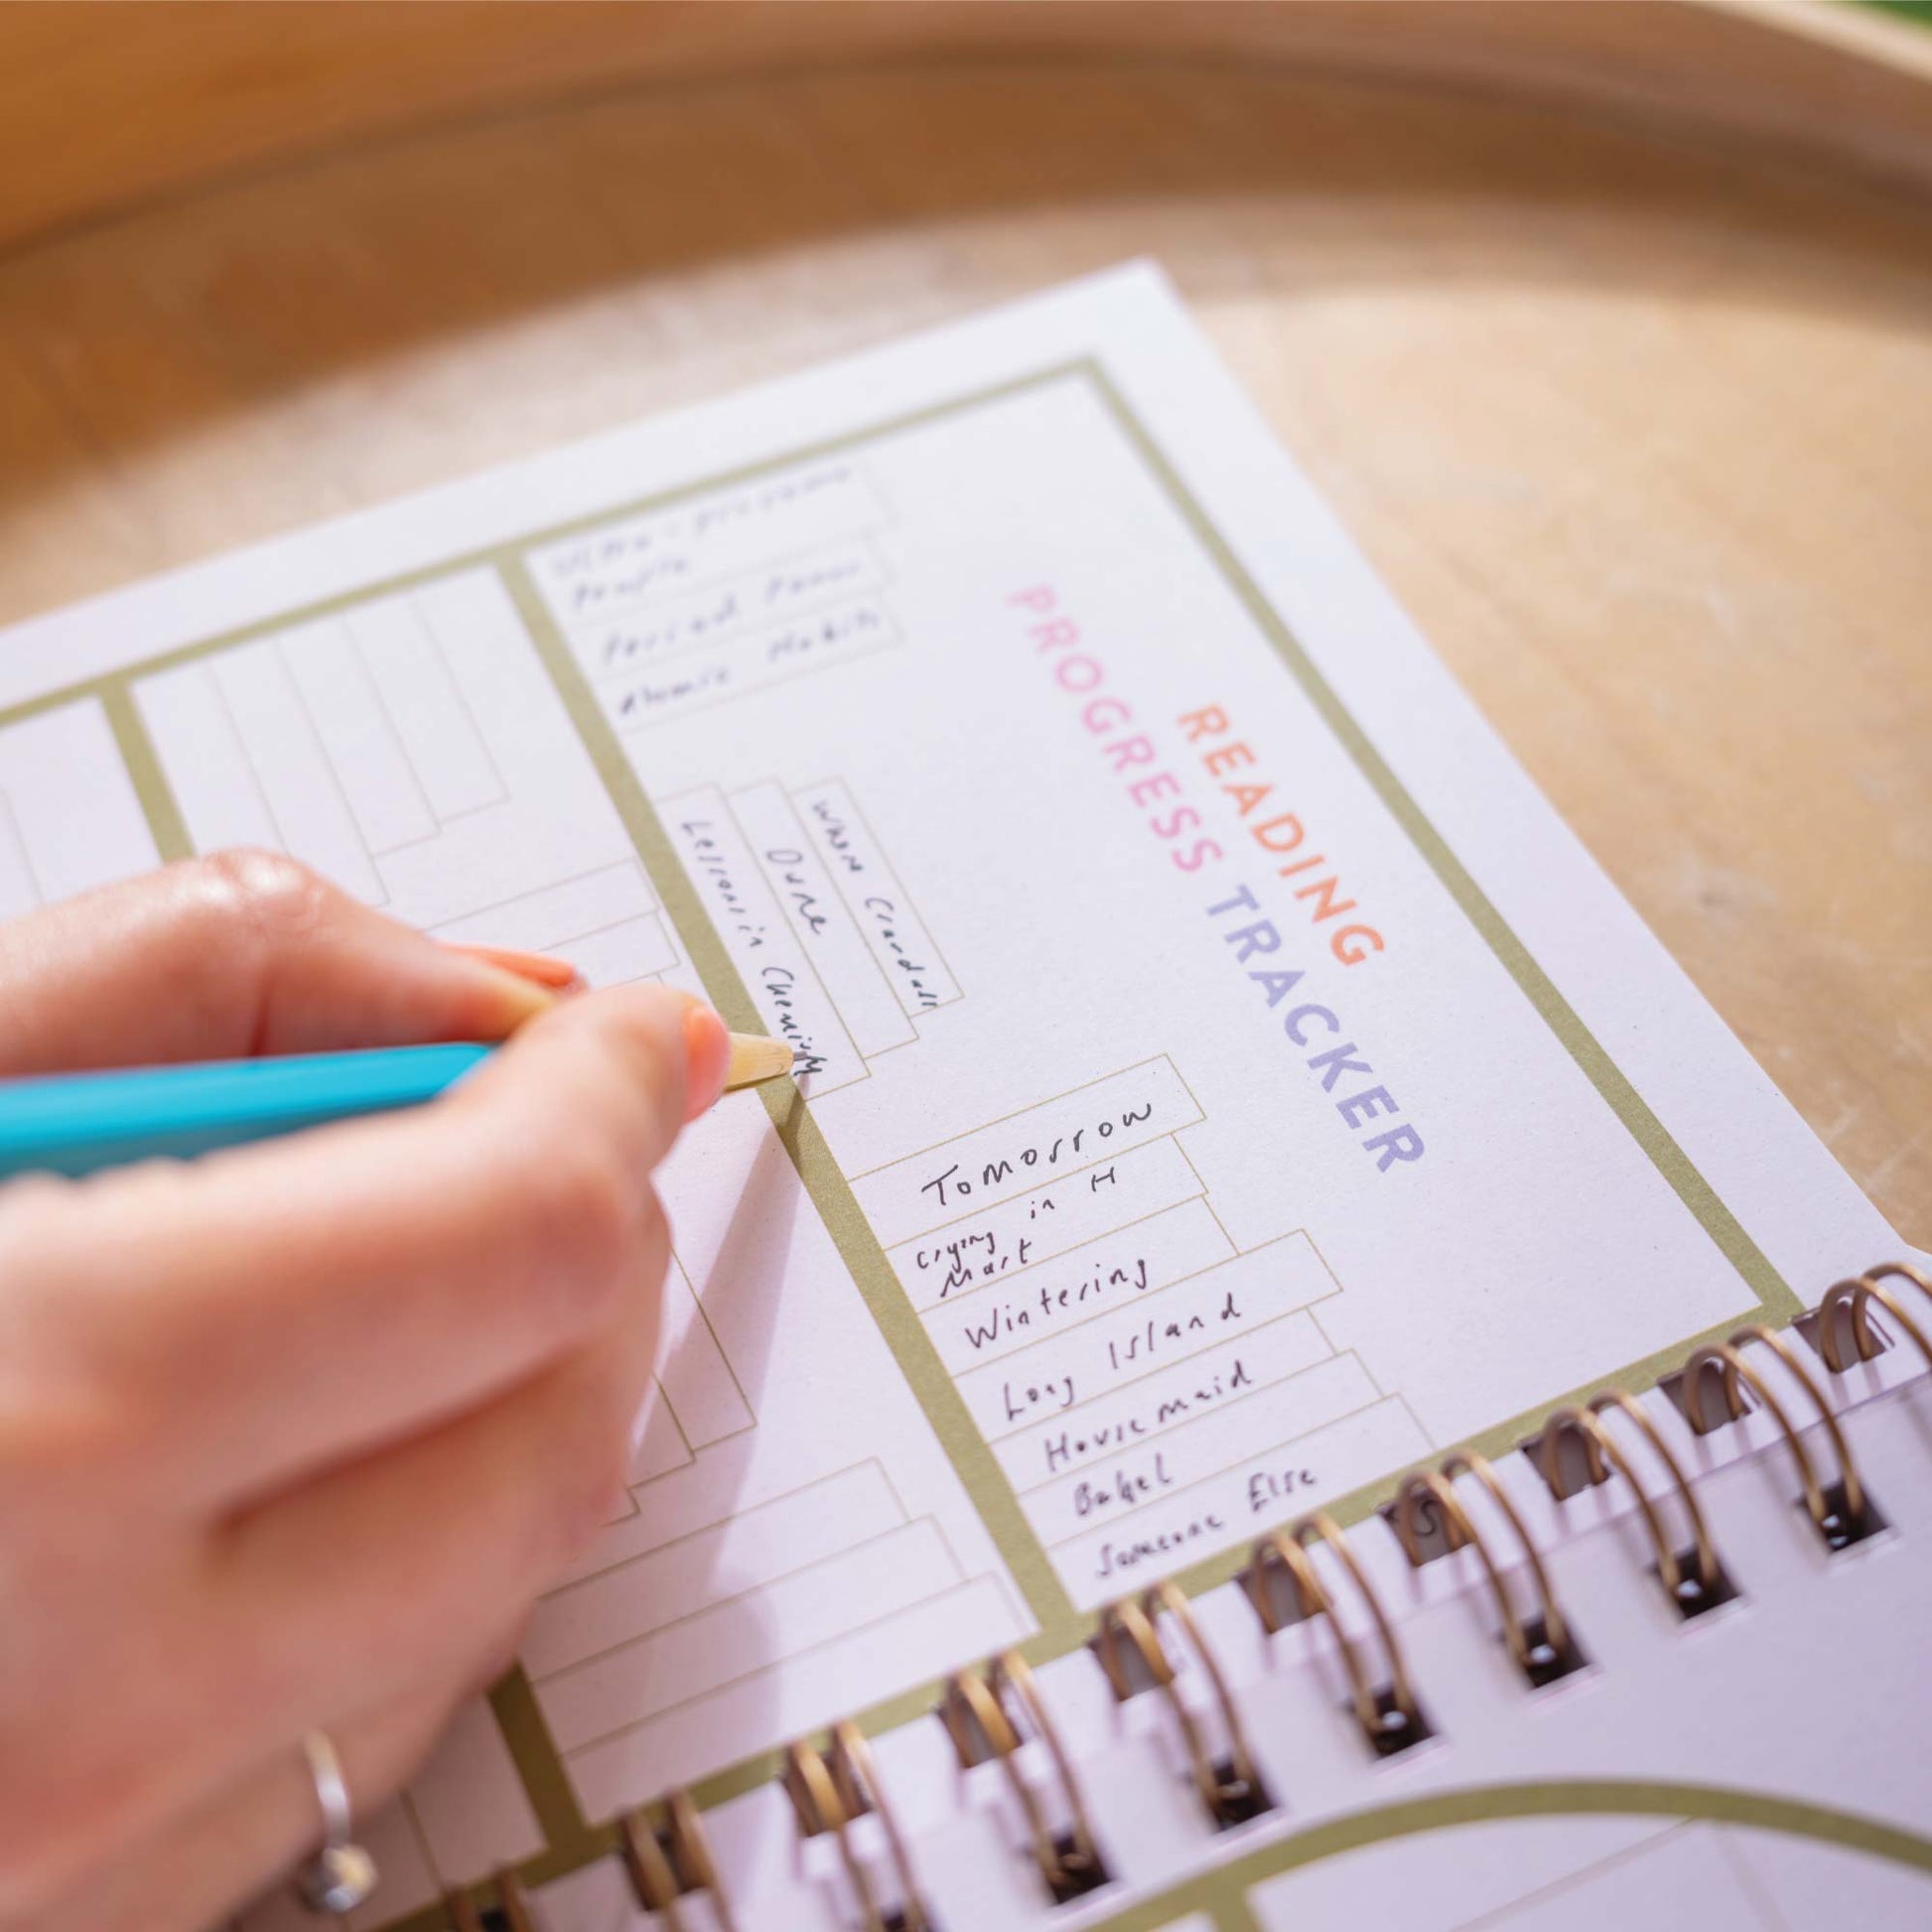 READING
PROGRESS TRACKER
Ultra - processed
People
Period Power
Atomic Habits
Lessons in Chemistry
Dune
Where Crawdads
Tomorrow
Crying in H
Mart
Wintering
Long Island
Housemaid
Babel
Someone Else